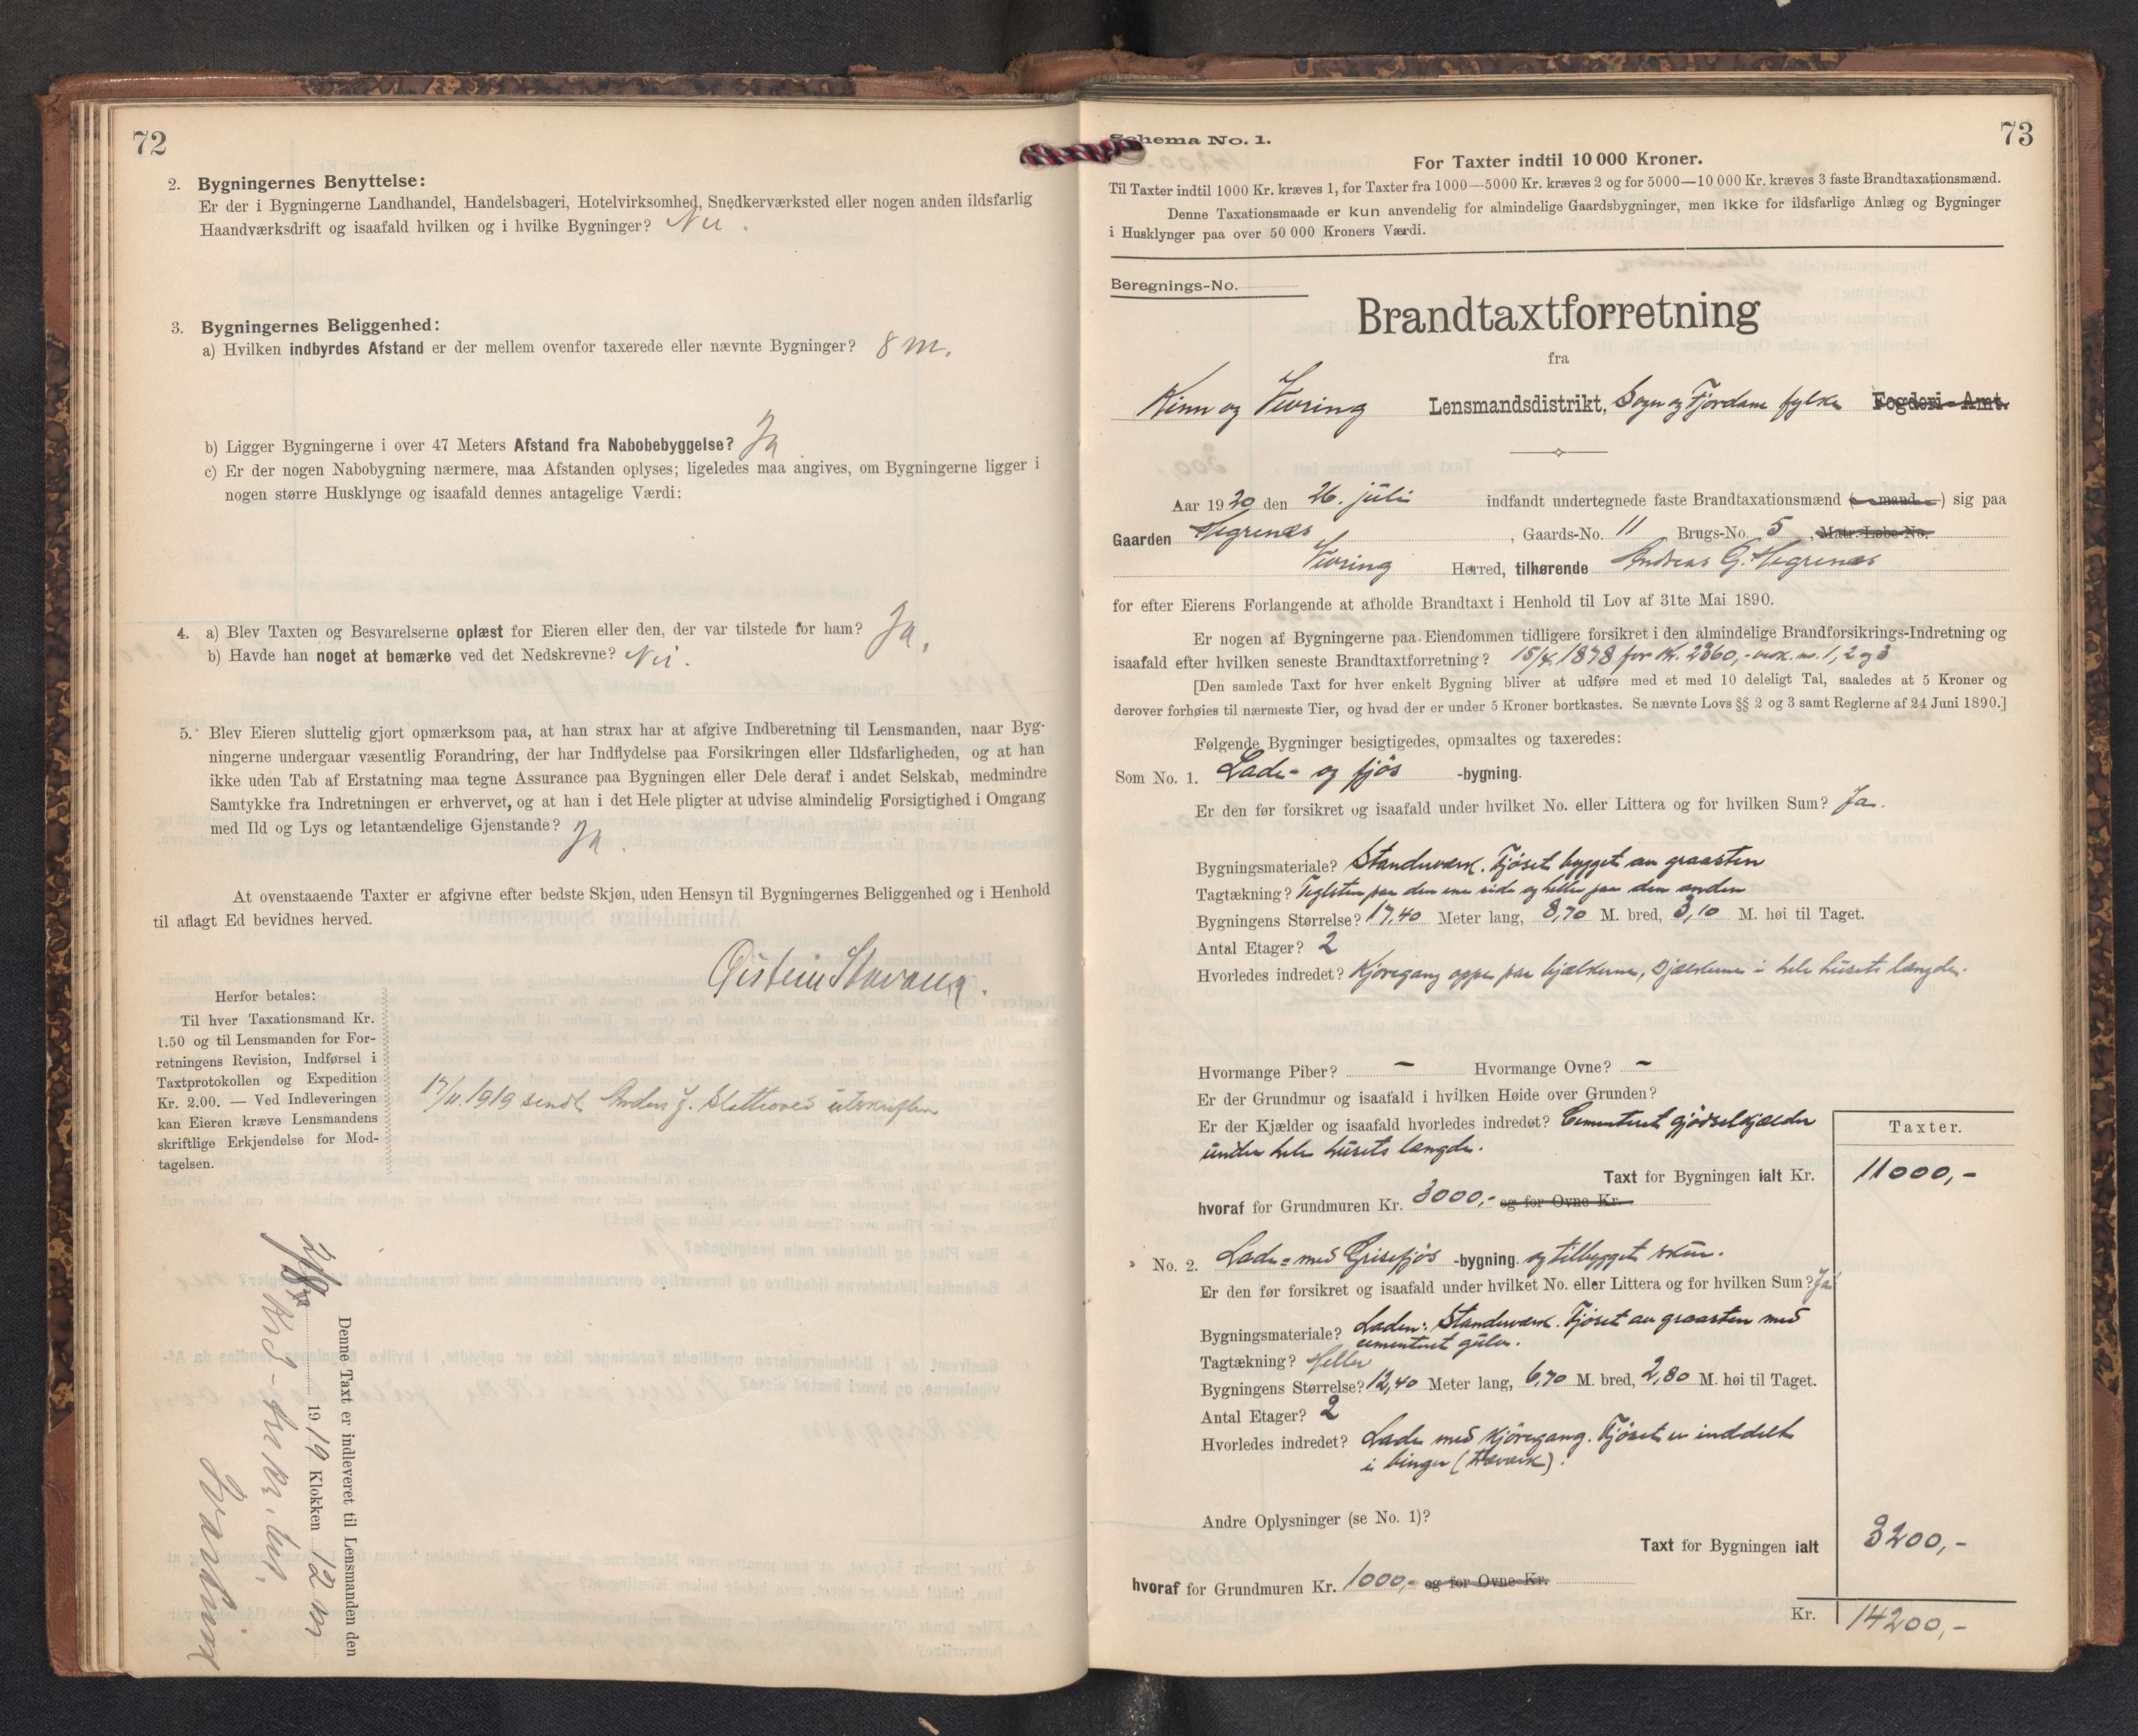 72
2. Bygningernes Benyttelse:
Er der i Bygningerne Landhandel, Handelsbageri, Hotelvirksomhed, Snedkerværksted eller nogen anden ildsfarlig
Haandværksdrift og isaafald hvilken og i hvilke Bygninger? Nei.
3. Bygningernes Beliggenhed:
a) Hvilken indbyrdes Afstand er der mellem ovenfor taxerede eller nævnte Bygninger? 8 m.
b) Ligger Bygningerne i over 47 Meters Afstand fra Nabobebyggelse? Ja
c) Er der nogen Nabobygning nærmere, maa Afstanden oplyses; ligeledes maa angives, om Bygningerne ligger i
nogen større Husklynge og isaafald dennes antagelige Værdi:
4. a) Blev Taxten og Besvarelserne oplæst for Eieren eller den, der var tilstede for ham? Ja.
b) Havde han noget at bemærke ved det Nedskrevne? Nei.
5. Blev Eieren sluttelig gjort opmærksom paa, at han strax har at afgive Indberetning til Lensmanden, naar Byg-
ningerne undergaar væsentlig Forandring, der har Indflydelse paa Forsikringen eller Ildsfarligheden, og at han
ikke uden Tab af Erstatning maa tegne Assurance paa Bygningen eller Dele deraf i andet Selskab, medmindre
Samtykke fra Indretningen er erhvervet, og at han i det Hele pligter at udvise almindelig Forsigtighed i Omgang
med Ild og Lys og letantændelige Gjenstande? Ja.
At ovenstaaende Taxter er afgivne efter bedste Skjøn, uden Hensyn til Bygningernes Beliggenhed og i Henhold
til aflagt Ed bevidnes herved.
Øistein Stavang.
Herfor betales:
Til hver Taxationsmand Kr.
1.50 og til Lensmanden for For-
retningens Revision, Indførsel i
Taxtprotokollen og Expedition
Kr. 2.00. — Ved Indleveringen
kan Eieren kræve Lensmandens
skriftlige Erkjendelse for Mod-
tagelsen.
17/11. 1919 sendt Anders J. utskriften
Denne Taxt er indleveret til Lensmanden den
1919 Klokken 12
73
Schema No. 1.
For Taxter indtil 10 000 Kroner.
Til Taxter indtil 1000 Kr. kræves 1, for Taxter fra 1000—5000 Kr. kræves 2 og for 5000—10 000 Kr. kræves 3 faste Brandtaxationsmænd.
Denne Taxationsmaade er kun anvendelig for almindelige Gaardsbygninger, men ikke for ildsfarlige Anlæg og Bygninger
i Husklynger paa over 50 000 Kroners Værdi.
Beregnings-No.
Brandtaxtforretning
fra
Kinn og Vevring Lensmandsdistrikt, Sogn og Fjordane fylke Fogderi Amt.
Aar 1920 den 26. juli indfandt undertegnede faste Brandtaxationsmænd (mand) sig paa
Gaarden Hegrenæs, Gaards-No. 11 Brugs-No. 5, Matr. Løbe-No.
Vevring Herred, tilhørende Andreas G. Hegrenæs
for efter Eierens Forlangende at afholde Brandtaxt i Henhold til Lov af 31te Mai 1890.
Er nogen af Bygningerne paa Eiendommen tidligere forsikret i den almindelige Brandforsikrings-Indretning og
isaafald efter hvilken seneste Brandtaxtforretning? 15/4. 1878 for kr. 2360,- no. 1, 2 og 3
[Den samlede Taxt for hver enkelt Bygning bliver at udføre med et med 10 deleligt Tal, saaledes at 5 Kroner og
derover forhøies til nærmeste Tier, og hvad der er under 5 Kroner bortkastes. Se nævnte Lovs §§ 2 og 3 samt Reglerne af 24 Juni 1890.]
Følgende Bygninger besigtigedes, opmaaltes og taxeredes:
Som No. 1. Lade- og fjøs -bygning.
Er den før forsikret og isaafald under hvilket No. eller Littera og for hvilken Sum? Ja.
Bygningsmateriale? Standverk. Fjøset bygget av graasten
Tagtækning? Teglsten paa den ene side og heller paa den anden
Bygningens Størrelse? 17,40 Meter lang, 8,70 M. bred, 3,10 M. høi til Taget.
Antal Etager? 2
Hvorledes indredet? Kjøregang oppe paa bjælkerne, Bjælkerne i hele husets længde.
Hvormange Piber? — Hvormange Ovne? —
Er der Grundmur og isaafald i hvilken Høide over Grunden?
Er der Kjælder og isaafald hvorledes indredet? Cementeret gjødselkjælder
under hele husets længde.
Taxter.
Taxt for Bygningen ialt Kr. 11000,-
hvoraf for Grundmuren Kr. 3000,- og for Ovne Kr.
" No. 2. Lade= med Grisefjøs -bygning. og tilbygget skur.
Er den før forsikret og isaafald under hvilket No. eller Littera og for hvilken Sum? Ja
Bygningsmateriale? Laden: Standverk. Fjøset av graasten med
cementeret gulv.
Tagtækning? Heller
Bygningens Størrelse? 12,40 Meter lang, 6,70 M. bred, 2,80 M. høi til Taget.
Antal Etager? 2
Hvorledes indredet? Lade med kjøregang. Fjøset er inddelt
i binger (træverk).
Andre Oplysninger (se No. 1)?
Taxt for Bygningen ialt 3200,-
hvoraf for Grundmuren Kr. 1000,- og for Ovne Kr.
Kr. 14200,-